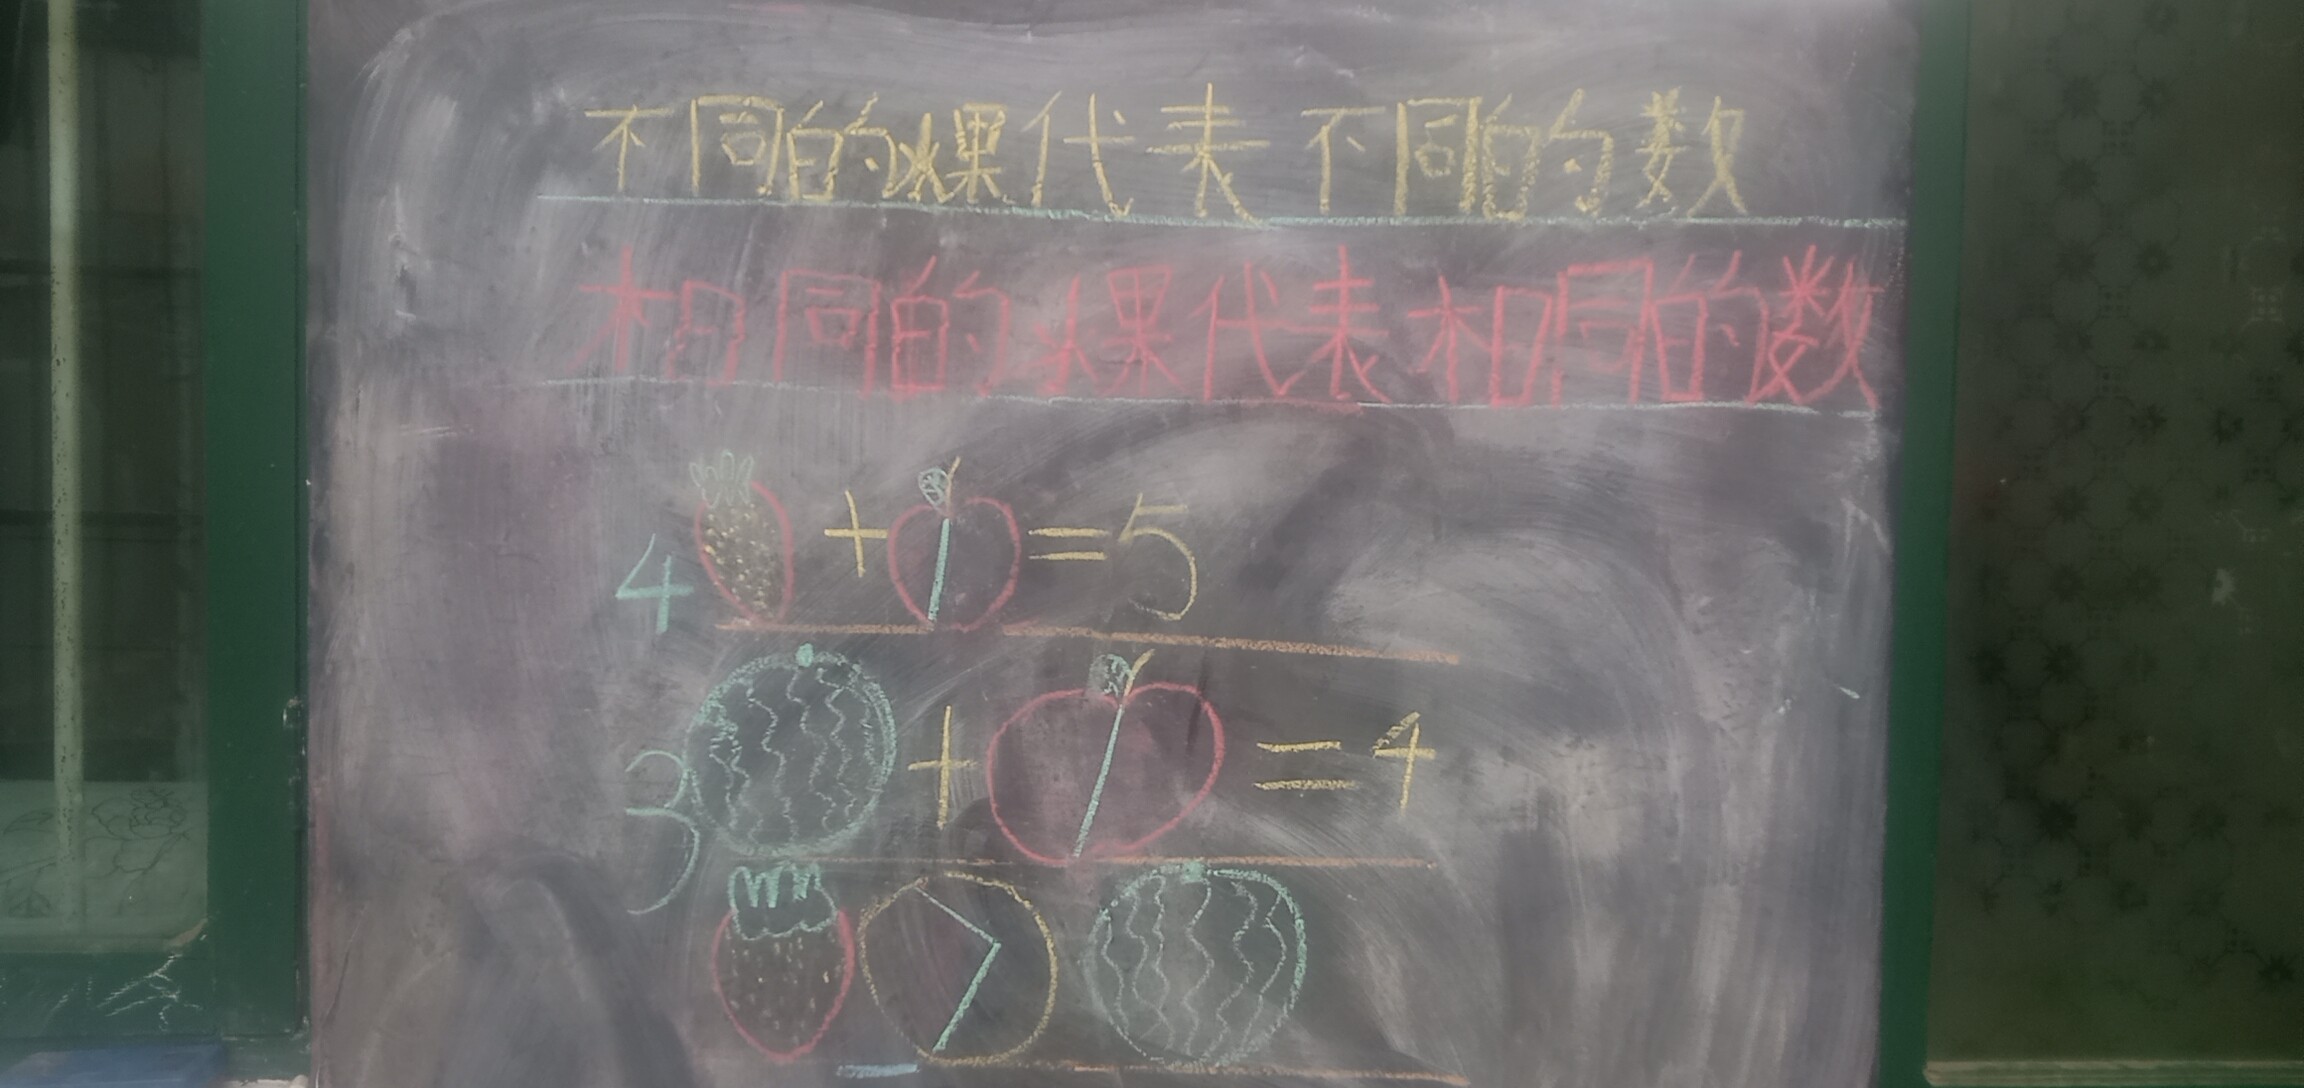 不同的水果代表不同的数
相同的水果代表相同的数
4 + 1 = 5
3 + 1 = 4
>